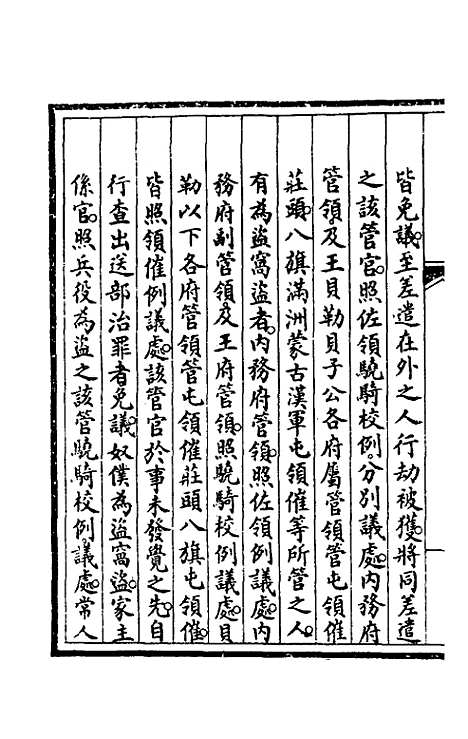 皆免議。至差遣在外之人行劫被獲。將同差遣
之該管官。照佐領驍騎校例。分別議處。內務府
管領。及王貝勒貝子公各府屬管領管屯領催
莊頭。八旗滿洲蒙古漢軍屯領催等所管之人。
有為盜窩盜者。內務府管領。照佐領例議處。內
務府副管領。及王府管領。照驍騎校例議處。貝
勒以下各府管領管屯領催莊頭八旗屯領催。
皆照領催例議處。該管官於事未發覺之先。自
行查出送部治罪者免議。奴僕為盜窩盜。家主
係官。照兵役為盜之該管驍騎校例。議處。常人